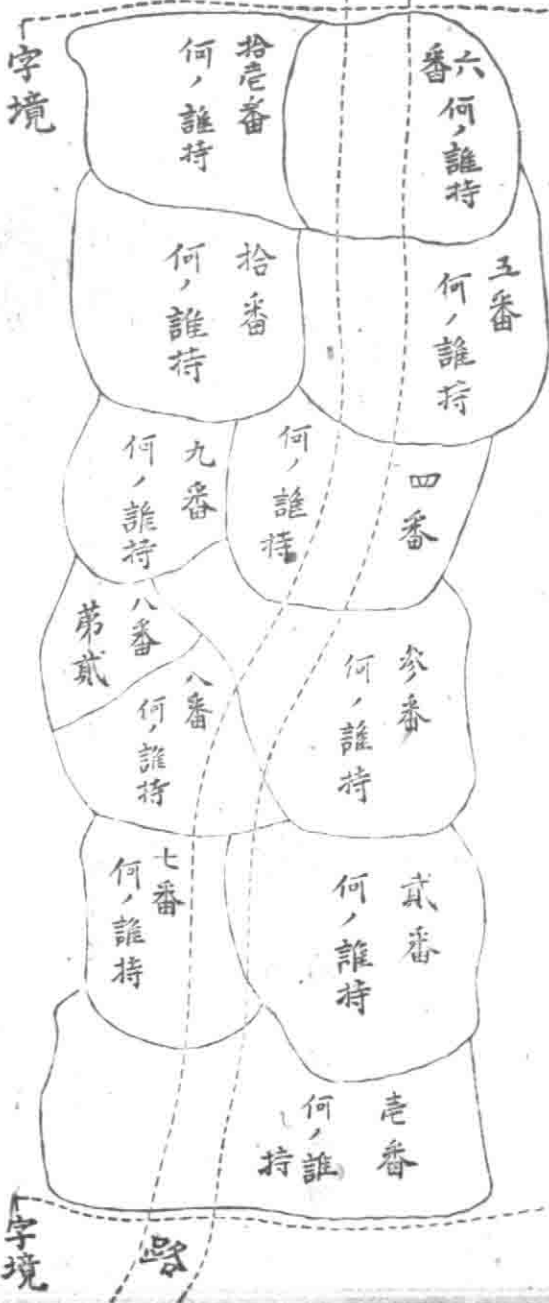 字境
六番
何ノ誰持
拾壱番
何ノ誰持
五番
何ノ誰持
拾番
何ノ誰持
四番
何ノ誰持
九番
何ノ誰持
八番
第貳
参番
何ノ誰持
八番
何ノ誰持
貳番
何ノ誰持
七番
何ノ誰持
壱番
何ノ誰
持
字境